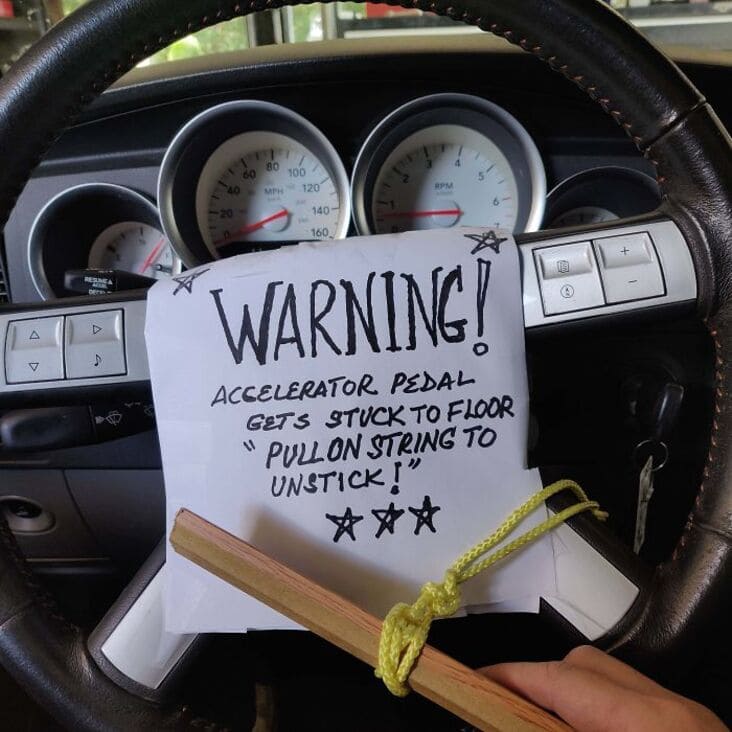 20
40
60
80
100
120
140
160
MPH
1
2
3
4
5
6
7
RPM
RESUME
ACCEL
DECEL
WARNING!
ACCELERATOR PEDAL
GETS STUCK TO FLOOR
"PULL ON STRING TO
UNSTICK!"